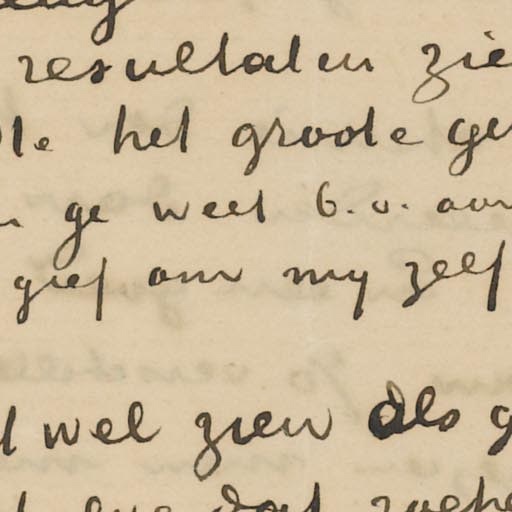 resultaten zie
het groote ge
ge weet b.v. aan
grief om myzelf
wel zien als g
dat